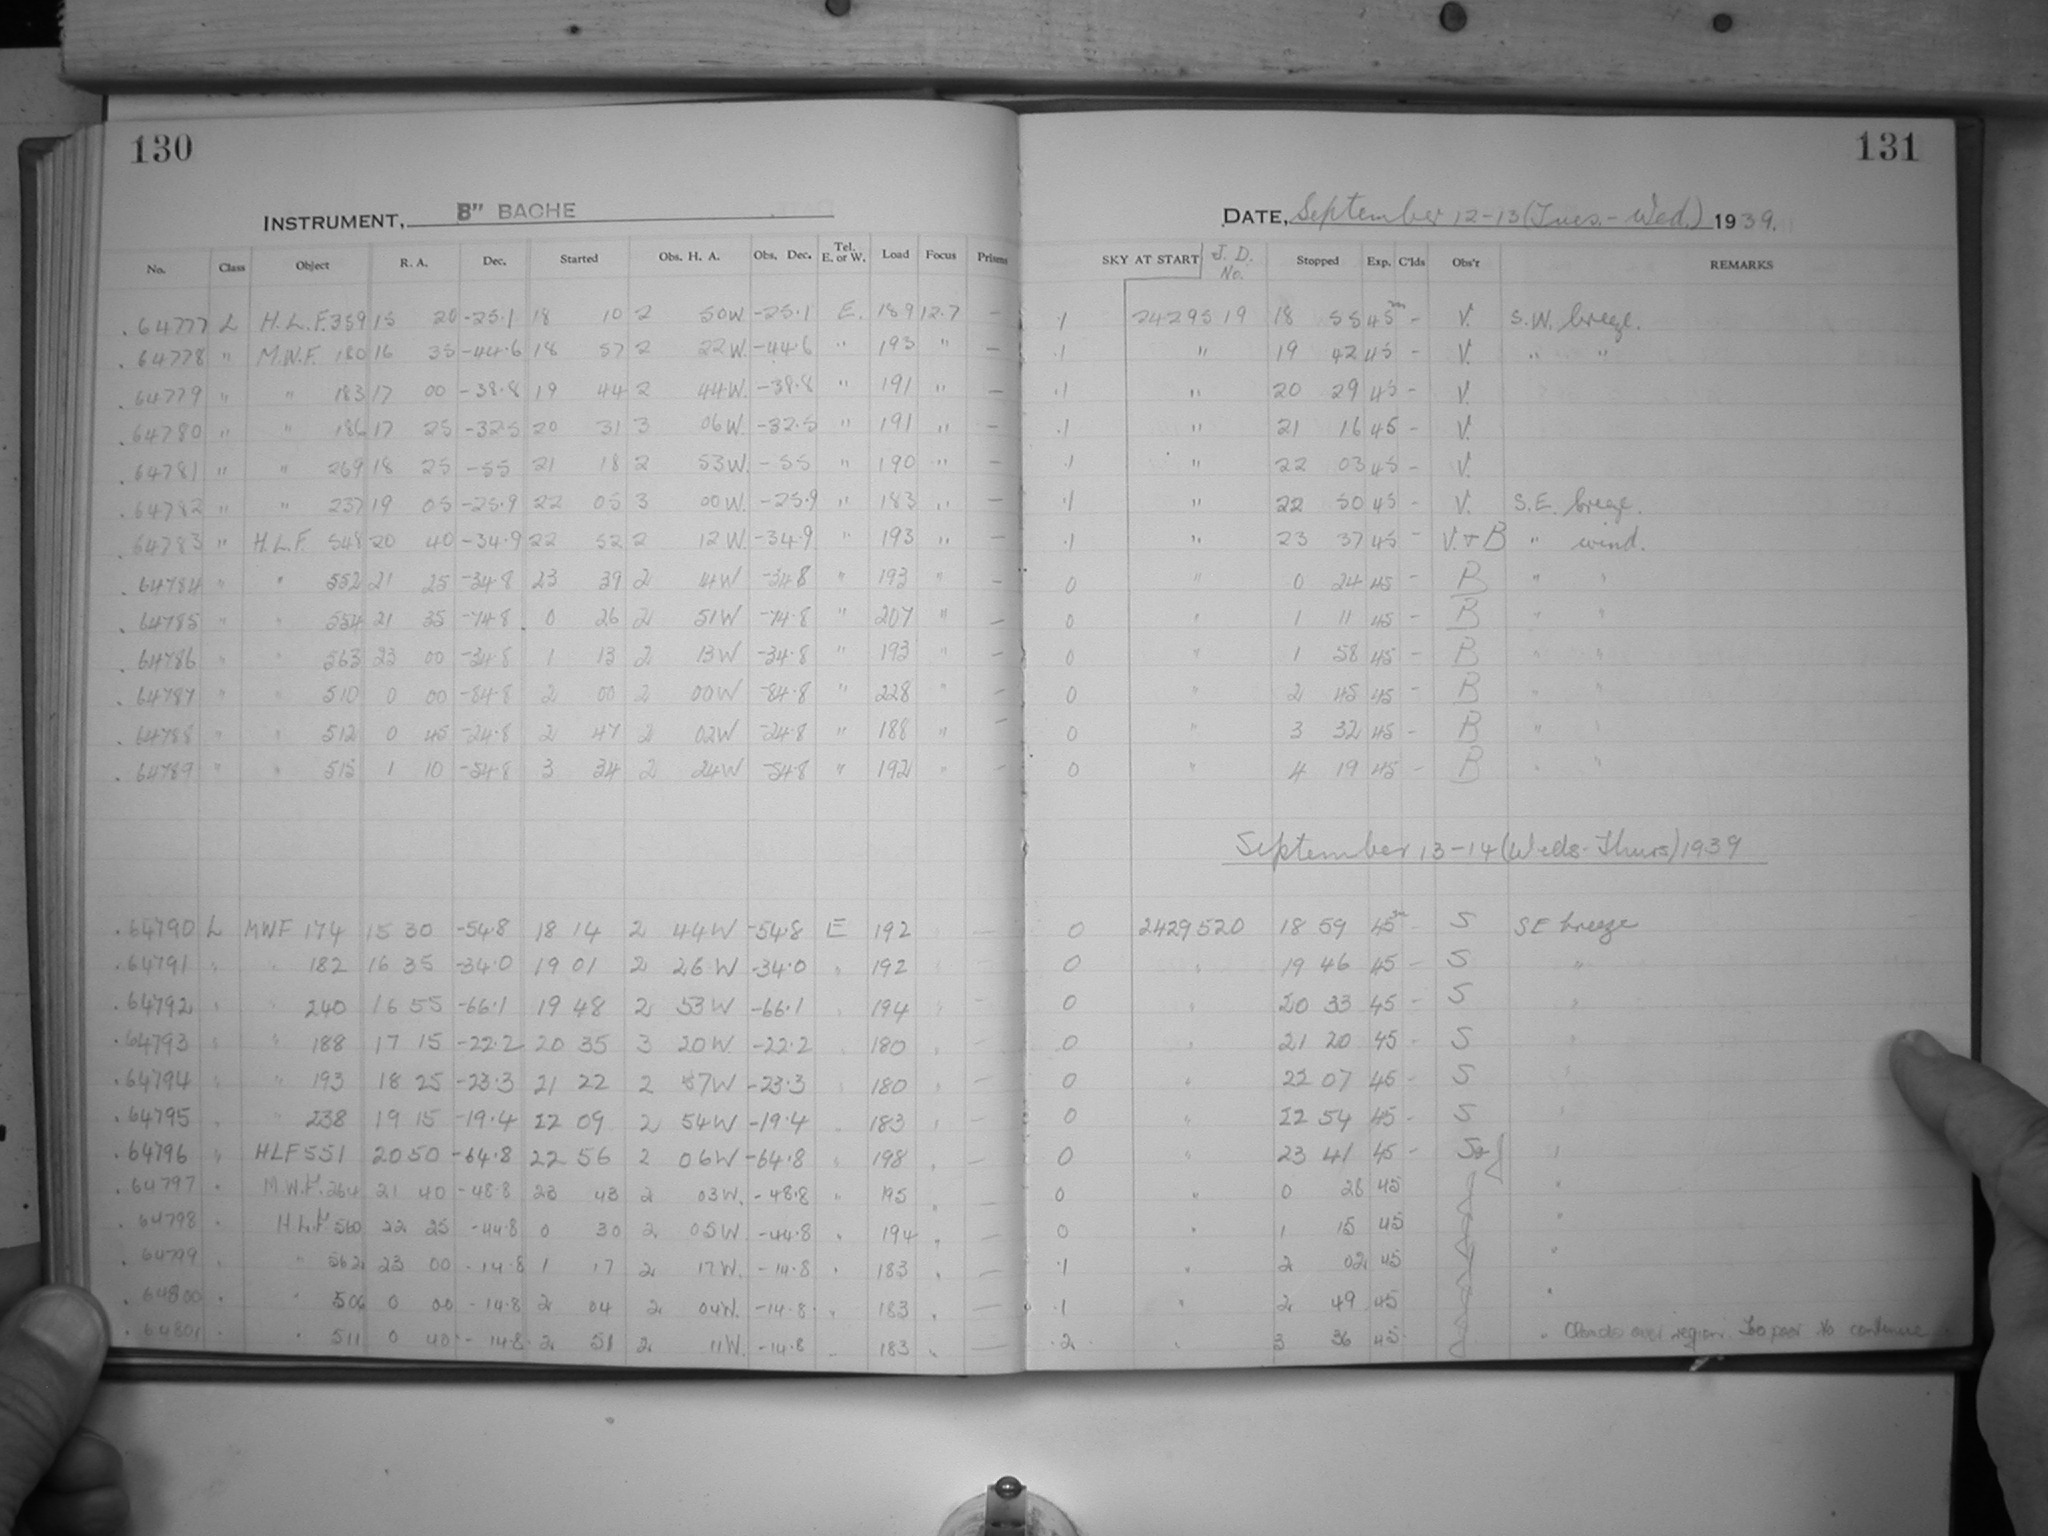 130
131
INSTRUMENT, 8" BACHE
DATE, September 12-13 (Tues.-Wed.) 1939.
No. Class Object R. A. Dec. Started Obs. H. A. Obs. Dec. Tel. E. or W. Load Focus Prisms SKY AT START J. D. No. Stopped Exp. C'lds Obs'r REMARKS
.64777 L H.L.F. 359 15 20 -25.1 18 10 2 50W -25.1 E. 189 12.7 .1 2429519 18 55 45m - V. S.W. breeze.
.64778 " M.W.F. 180 16 35 -44.6 18 57 2 22W. -44.6 " 193 " - .1 " 19 42 45 - V. " "
.64779 " " 183 17 00 -38.8 19 44 2 44W. -38.8 " 191 " - .1 " 20 29 45 - V.
.64780 " " 186 17 25 -32.5 20 31 3 06W. -32.5 " 191 " - .1 " 21 16 45 - V.
.64781 " " 269 18 25 -55 21 18 2 53W. -55 " 190 " - .1 " 22 03 45 - V.
.64782 " " 237 19 05 -25.9 22 05 3 00W. -25.9 " 183 " - .1 " 22 50 45 - V. S.E. breeze.
.64783 " H.L.F. 548 20 40 -34.9 22 52 2 12W. -34.9 " 193 " - .1 " 23 37 45 - V.+B " wind.
.64784 " " 552 21 25 -34.8 23 39 2 14W -34.8 " 193 " - 0 " 0 24 45 - B " "
.64785 " " 554 21 35 -74.8 0 26 2 51W -74.8 " 207 " - 0 " 1 11 45 - B " "
.64786 " " 563 23 00 -34.8 1 13 2 13W -34.8 " 193 " - 0 " 1 58 45 - B " "
.64787 " 510 0 00 -84.8 2 00 2 00W -84.8 " 228 " - 0 " 2 45 45 - B " "
.64788 " " 512 0 45 -24.8 2 47 2 02W -24.8 " 188 " - 0 " 3 32 45 - B " "
.64789 " " 515 1 10 -54.8 3 34 2 24W -54.8 " 192 " - 0 " 4 19 45 - B " "
September 13-14 (Weds-Thurs) 1939
.64790 L MWF 174 15 30 -54.8 18 14 2 44W -54.8 E 192 - 0 2429520 18 59 45m - S SE breeze
.64791 " " 182 16 35 -34.0 19 01 2 26W -34.0 " 192 - 0 " 19 46 45 - S "
.64792 " " 240 16 55 -66.1 19 48 2 53W -66.1 " 194 - 0 " 20 33 45 - S "
.64793 " " 188 17 15 -22.2 20 35 3 20W. -22.2 " 180 " - 0 " 21 20 45 - S "
.64794 " " 193 18 25 -23.3 21 22 2 57W -23.3 " 180 " - 0 " 22 07 45 - S "
.64795 " " 238 19 15 -19.4 22 09 2 54W -19.4 " 183 " - 0 " 22 54 45 - S "
.64796 " HLF 551 20 50 -64.8 22 56 2 06W -64.8 " 198 " - 0 " 23 41 45 - "
.64797 " M.W.F. 264 21 40 -48.8 23 43 2 03W. -48.8 " 195 " - 0 " 0 28 45 "
.64798 " H.L.F. 560 22 25 -44.8 0 30 2 05W. -44.8 " 194 " - 0 " 1 15 45 "
.64799 " " 562 23 00 -14.8 1 17 2 17W. -14.8 " 183 " - .1 " 2 02 45 "
.64800 " " 506 0 00 -14.8 2 04 2 04W. -14.8 " 183 " - .1 " 2 49 45 "
.64801 " " 511 0 40 -14.8 2 51 2 11W. -14.8 " 183 " - .2 " 3 36 45 " Clouds over region. Too poor to continue.